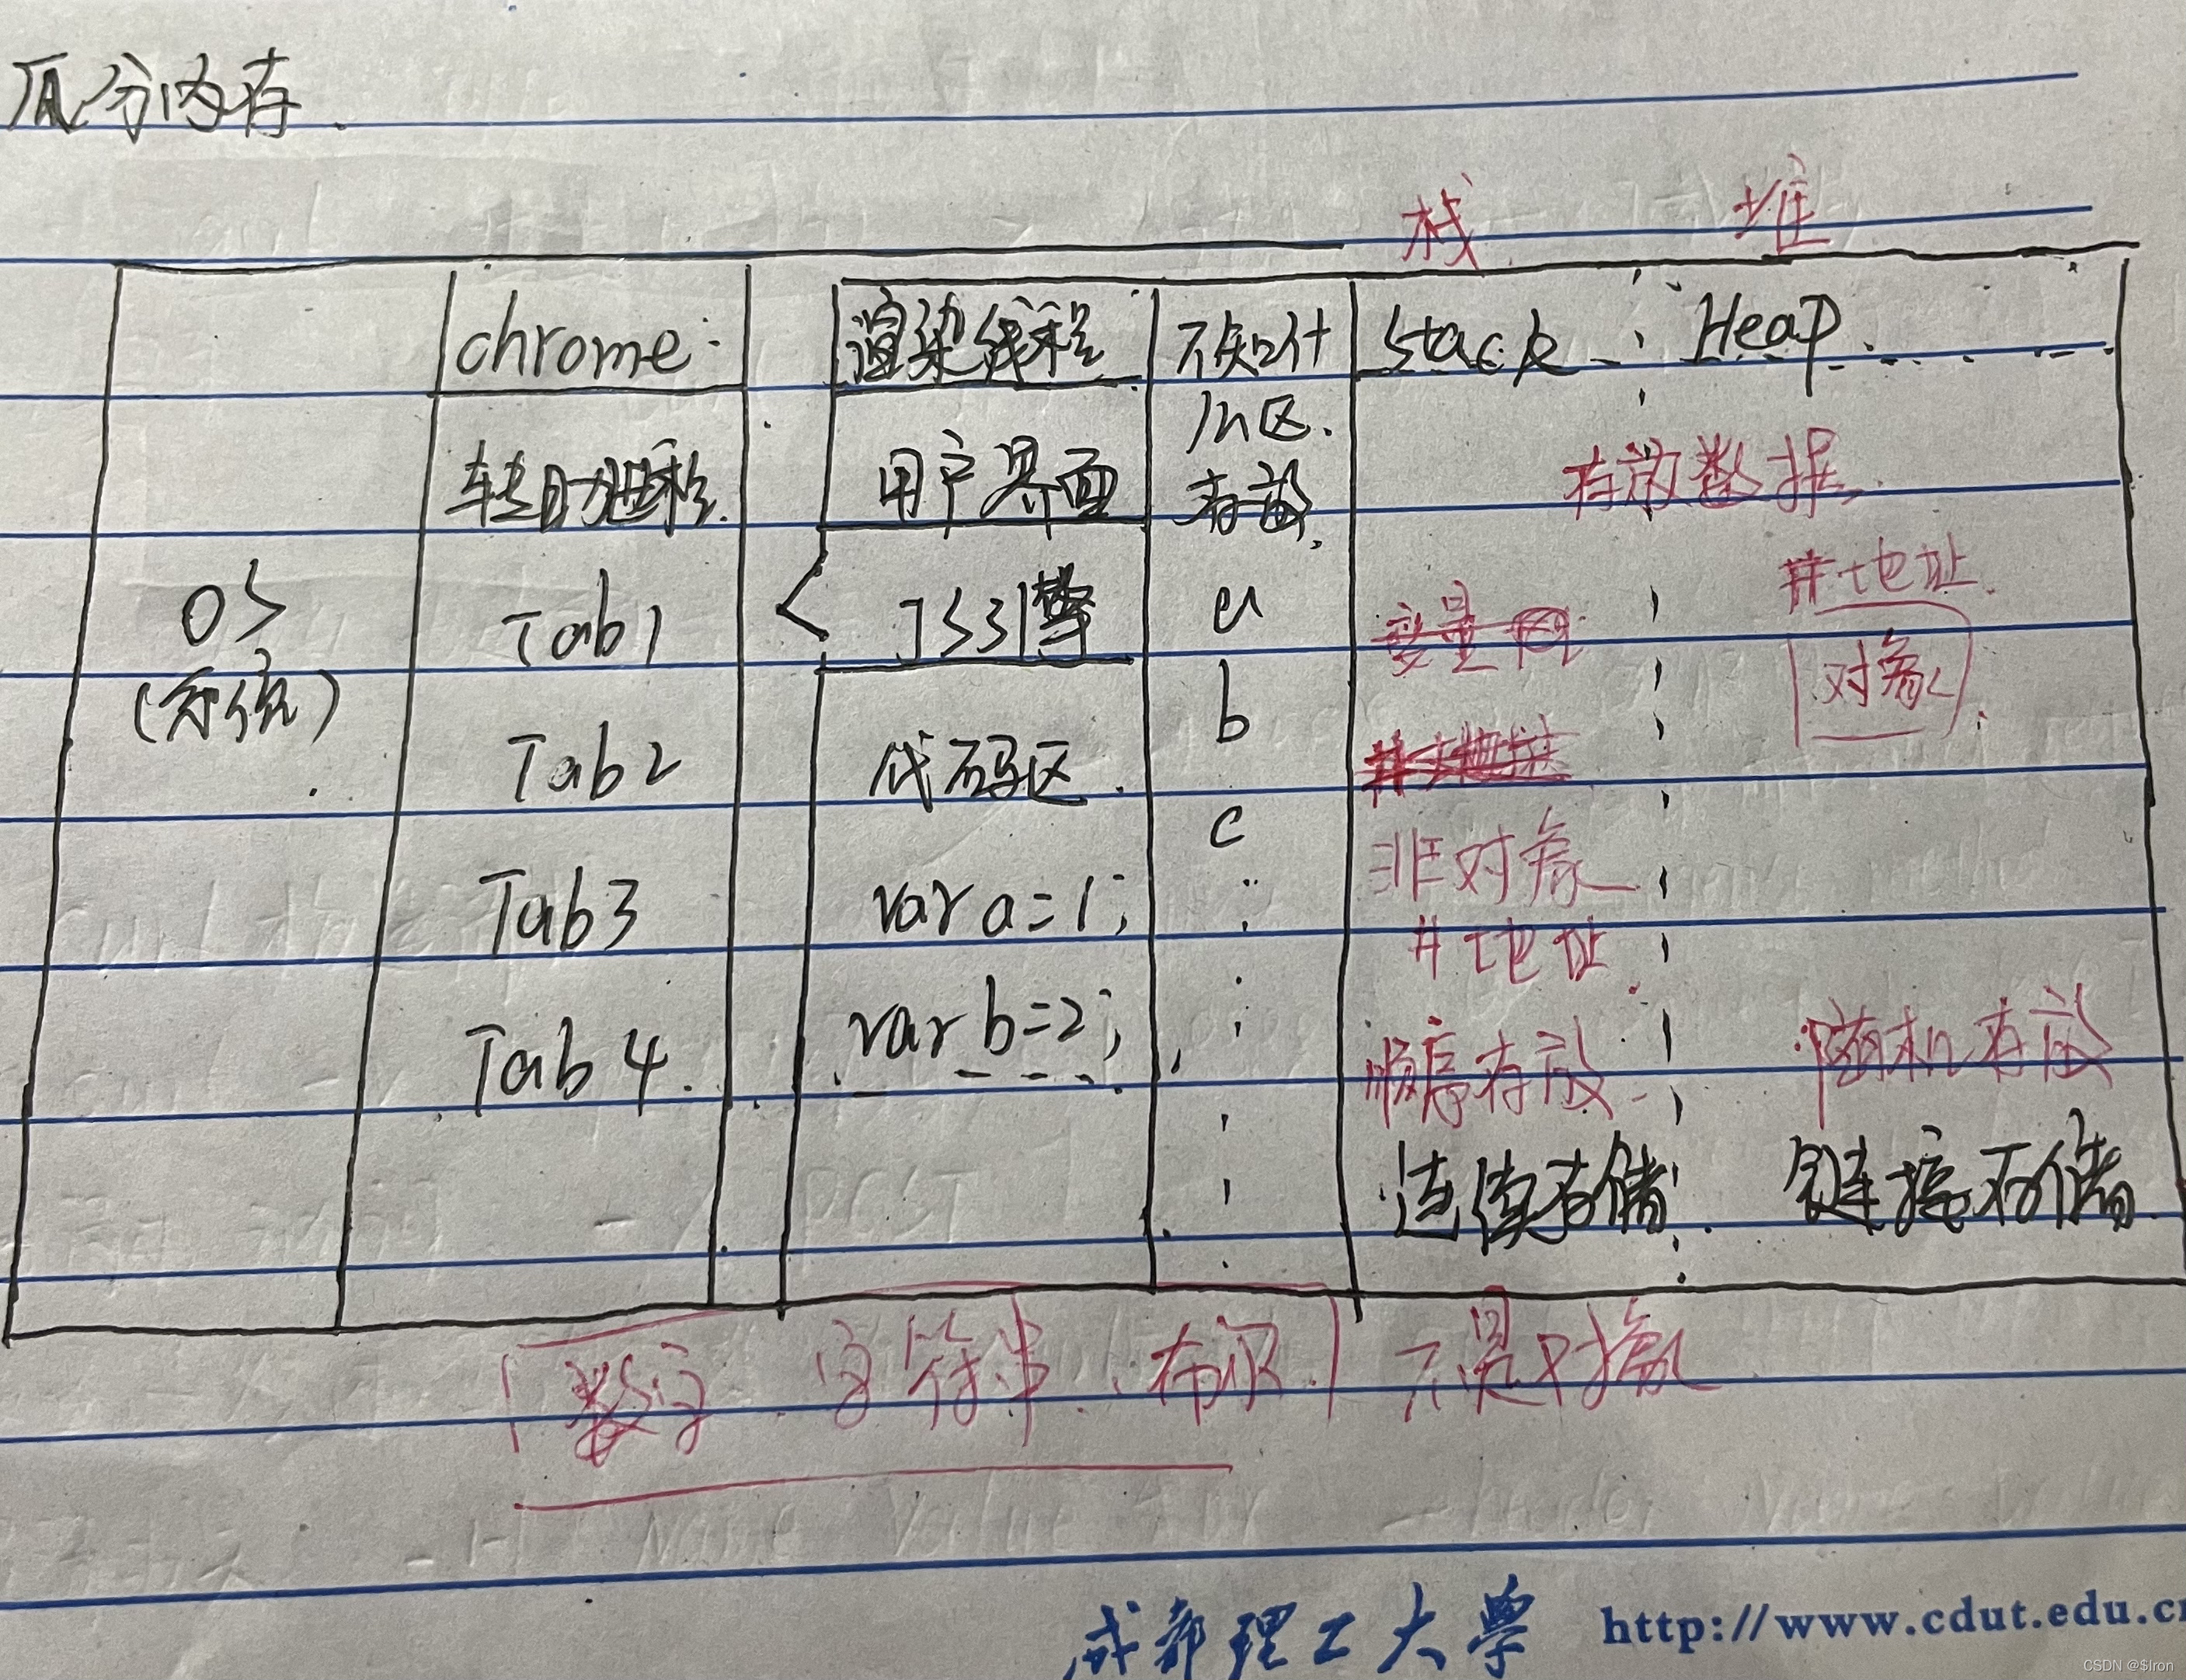 瓜分内存.
栈 堆
chrome: 渲染线程 不知什 Stack Heap
么区.
辅助进程. 用户界面 存放. 存放数据
OS Tab1 JS引擎 a #地址.
b 对象
Tab2 代码区.
c 非对象
Tab3 var a=1; #地址.
Tab4. var b=2; 顺序存放 随机存放
连续存储. 链接存储.
数字. 字符串. 布尔. 不是对象
成都理工大学 http://www.cdut.edu.c
CSDN @$Iron